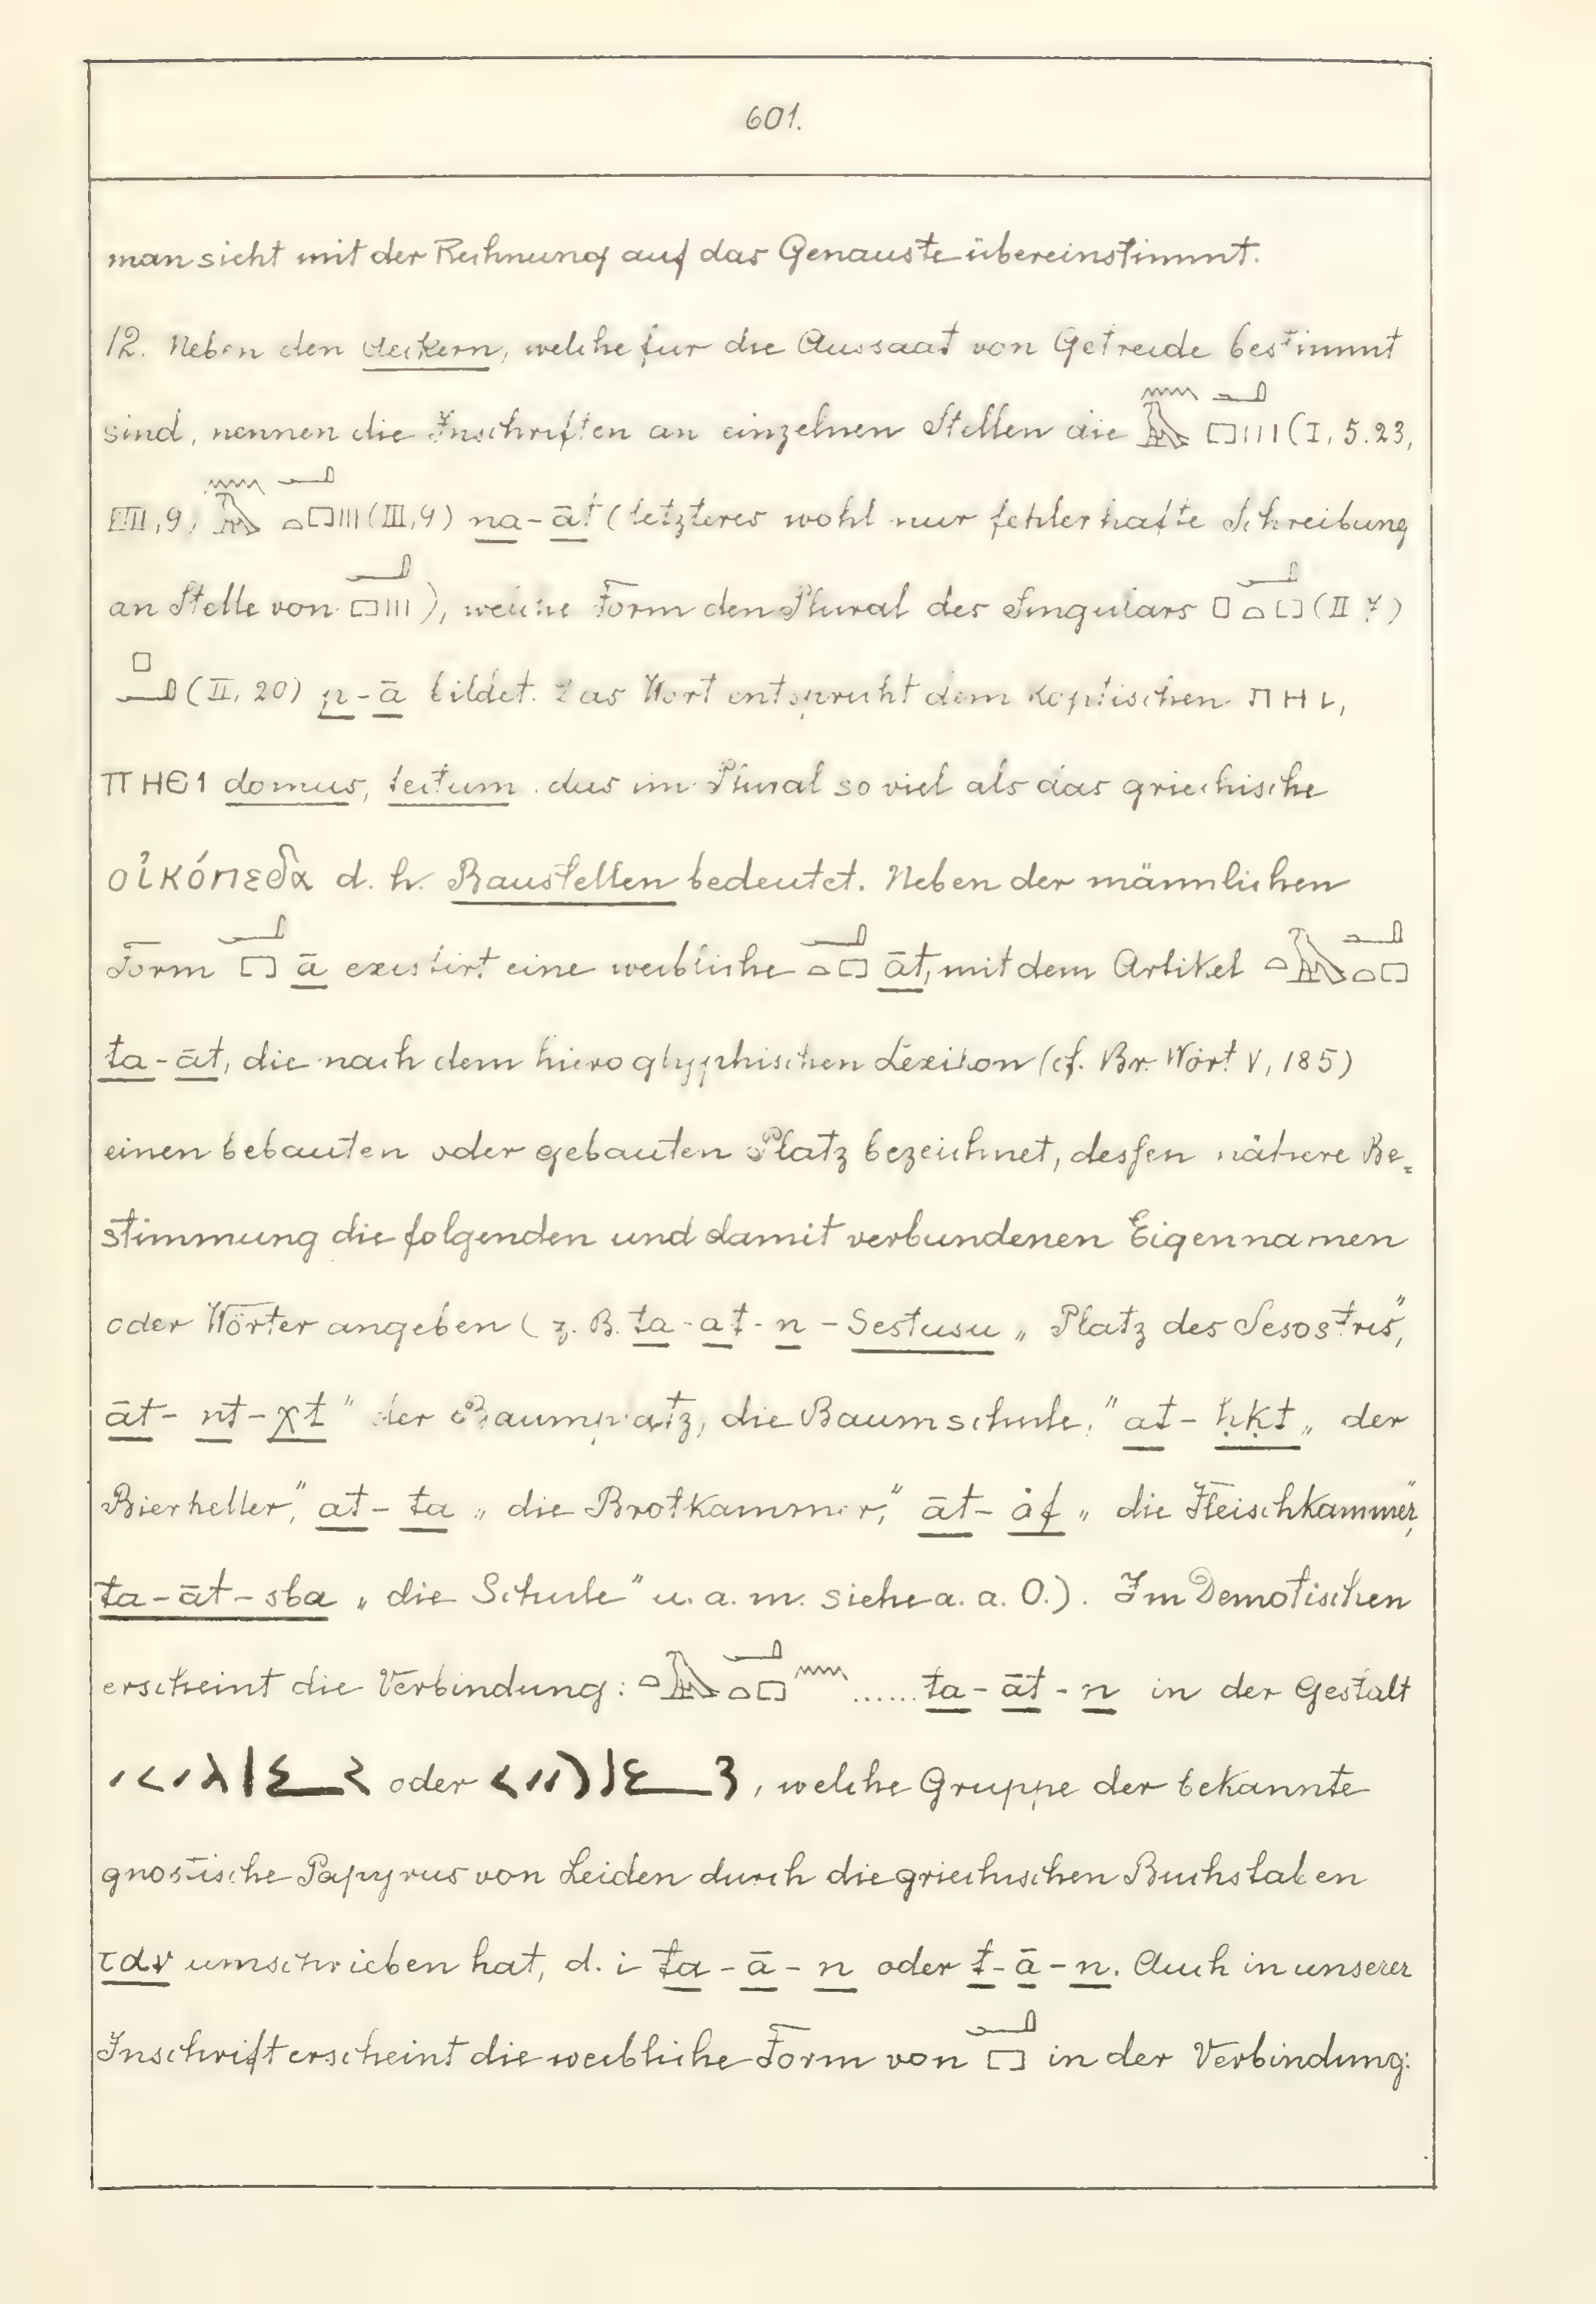 601.
man sieht mit der Rechnung auf das Genauste übereinstimmt.
12. Neben den Aeckern, welche für die Aussaat von Getreide bestimmt
sind, nennen die Inschriften an einzelnen Stellen die (I, 5.23,
III, 9) (III, 9) na-āt (letzteres wohl nur fehlerhafte Schreibung
an Stelle von ), welche Form den Plural des Singulars (II 7)
(II, 20) p-ā bildet. Das Wort entspricht dem koptischen ΠΗΙ,
ΠΗЄΙ domus, tectum das im Plural so viel als das griechische
οἰκόπεδα d. h. Baustellen bedeutet. Neben der männlichen
Form ā existirt eine weibliche āt, mit dem Artikel
ta-āt, die nach dem hieroglyphischen Lexikon (cf. Br. Wört V, 185)
einen bebauten oder gebauten Platz bezeichnet, dessen nähere Be=
stimmung die folgenden und damit verbundenen Eigennamen
oder Wörter angeben (z. B. ta-at-n-Sestusu „Platz des Sesostris",
āt-nt-χt" der Baumplatz, die Baumschule," at-ḥḳt „der
Bierkeller", at-ta „die Brotkammer," āt-åf „die Fleischkammer",
ta-āt-sba „die Schule" u. a. m. siehe a. a. O.). Im Demotischen
erscheint die Verbindung: ...... ta-āt-n in der Gestalt
oder , welche Gruppe der bekannte
gnostische Papyrus von Leiden durch die griechischen Buchstaben
ταν umschrieben hat, d. i ta-ā-n oder t-ā-n. Auch in unserer
Inschrift erscheint die weibliche Form von in der Verbindung: